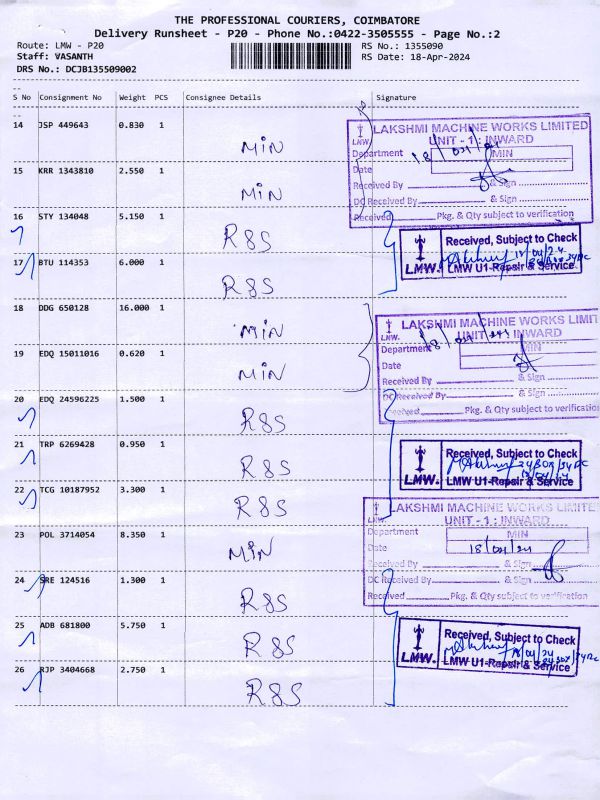 THE PROFESSIONAL COURIERS, COIMBATORE
Delivery Runsheet - P20 - Phone No.:0422-3505555 - Page No.:2
Route: LMW - P20
RS No.: 1355090
Staff: VASANTH
RS Date: 18-Apr-2024
DRS No.: DCJB135509002
S No Consignment No Weight PCS Consignee Details Signature
14 JSP 449643 0.830 1 MIN
LAKSHMI MACHINE WORKS LIMITED
LMW. UNIT - 1 : INWARD
Department MIN
Date 18/04/24
15 KRR 1343810 2.550 1 MIN
Received By & Sign
DC Received By & Sign
Received Pkg. & Qty subject to verification
16 STY 134048 5.150 1 R8S
Received, Subject to Check
LMW. LMW U1-Repair & Service
17 BTU 114353 6.000 1 R8S
18 DDG 650128 16.000 1 MIN
LAKSHMI MACHINE WORKS LIMIT
LMW. UNIT - 1 : INWARD
Department MIN
Date
19 EDQ 15011016 0.620 1 MIN
Received By & Sign
DC Received By & Sign
Received Pkg. & Qty subject to verification
20 EDQ 24596225 1.500 1 R8S
21 TRP 6269428 0.950 1 R8S
Received, Subject to Check
LMW. LMW U1-Repair & Service
22 TCG 10187952 3.300 1 R8S
LAKSHMI MACHINE WORKS LIMITE
LMW. UNIT - 1 : INWARD
23 POL 3714054 8.350 1 MIN
Department MIN
Date 18/04/24
Received By & Sign
24 SRE 124516 1.300 1 R8S
DC Received By & Sign
Received Pkg. & Qty subject to verification
25 ADB 681800 5.750 1 R8S
Received, Subject to Check
LMW. LMW U1-Repair & Service
26 RJP 3404668 2.750 1 R8S